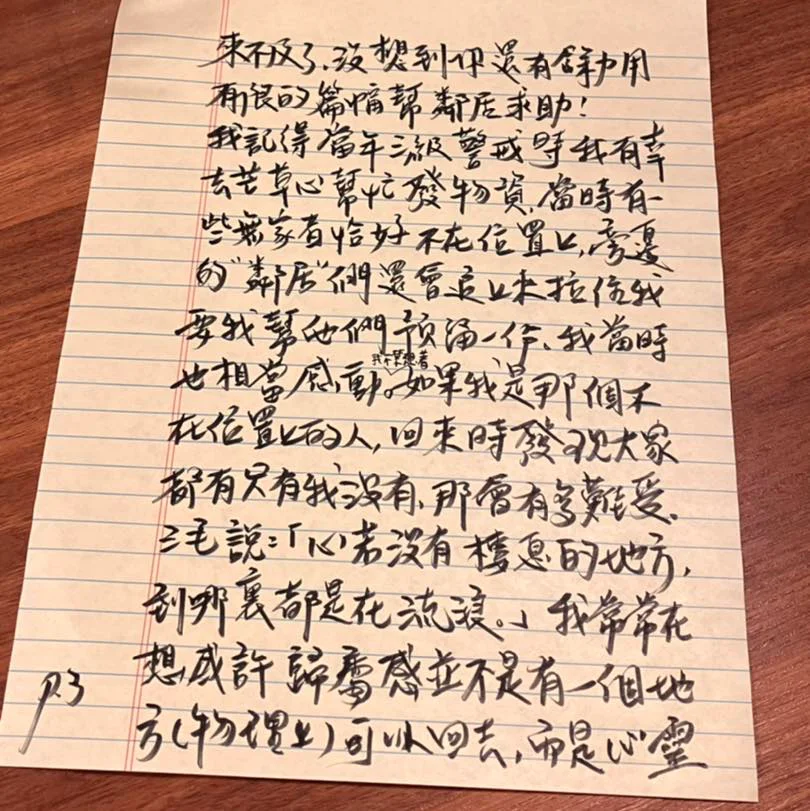 來不及了、沒想到你還有餘力用
有限的篇幅幫鄰居求助！
我記得當年三級警戒時我有幸
去芒草心幫忙發物資，當時有一
些無家者恰好不在位置上，旁邊
的"鄰居"們還會追上來拉住我
要我幫他們預留一份、我當時
也相當感動。我不禁想著如果我是那個不
在位置上的人，回來時發現大家
都有只有我沒有、那會有多難受、
三毛說：「心若沒有棲息的地方，
到哪裏都是在流浪。」我常常在
想或許歸屬感並不是有一個地
方(物理上)可以回去，而是心靈
P.3